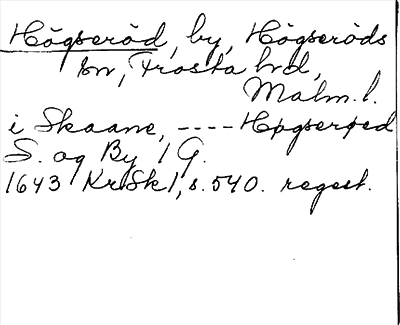 Högseröd, by, Högseröds
sn, Frosta hd,
Malm. l.
i Skaane, ---- Høgserøed
S. og By 1 G.
1643 KrSk1, s. 540. regest.